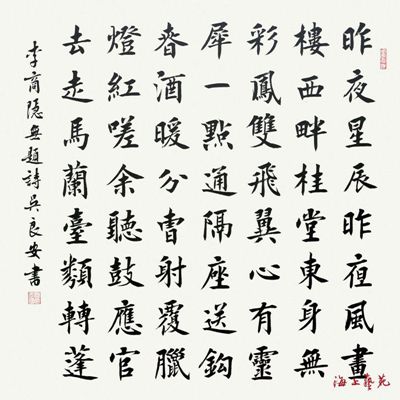 昨夜星辰昨夜風畫
樓西畔桂堂東身無
彩鳳雙飛翼心有靈
犀一點通隔座送鈎
春酒暖分曹射覆臘
燈紅嗟余聽鼓應官
去走馬蘭臺類轉蓬
李商隐無題詩吳良安書
海上藝苑